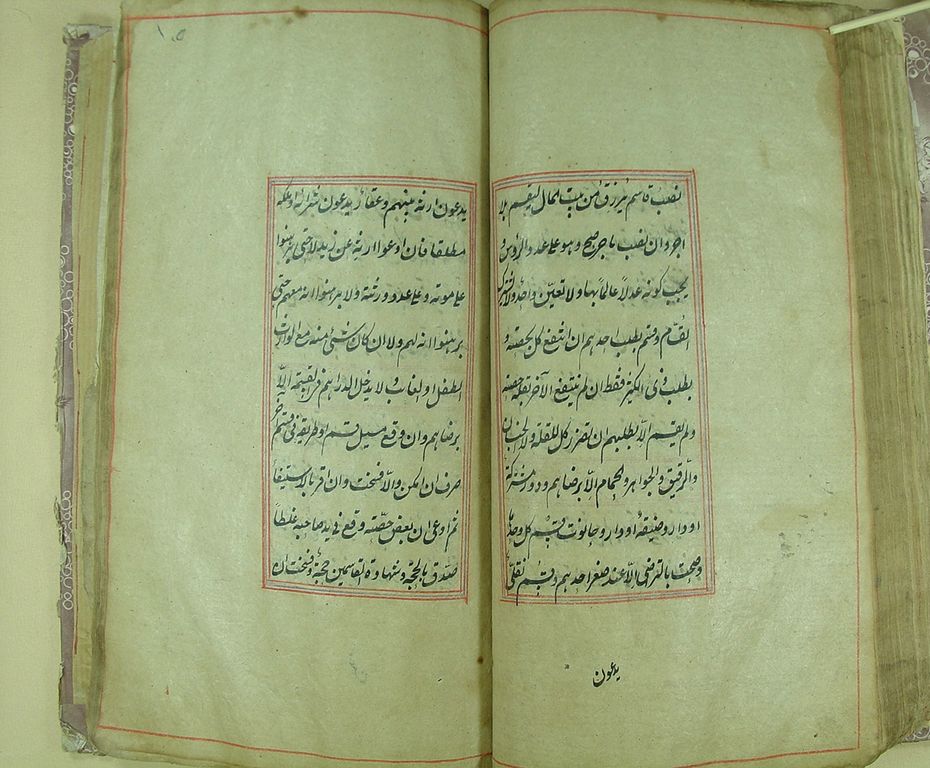 نصب قاسم يرزق من بيت المال ليقسم بلا
اجر وان نصب باجر صح وهو على عدد الرؤس و
يجب كونه عدلاً عالمًا بها ولا تعيّن واحد ولا تشترك
القسام وقسم بطلب احدهم ان انتفع كل بحصته و
بطلب ذى الكثير فقط ان لم ينتفع الآخر بقلة حصته
ولم يقسم الّا بطلبهم ان تضرر كل للقلة ولا الجنسان
والرقيق والجواهر والحمام الّا برضاهم ودور مشتركة
او دار وضيعة او دار وحانوت قسم كل وحد
وصحت بالتراضى الّا عند صغر احدهم وقسم نقلىّ
يدعون
يدعون ارثه بينهم وعقار يدعون شراءه او ملكه
مطلقا فان ادعوا ارثه عن زيد لا حتى برهنوا
على موته وعلى عدد ورثته ولا ان برهنوا انه معهم حتى
برهنوا انه لهم ولا ان كان شئ منه مع الوارث
الطفل او الغائب ولا يدخل الدراهم فى القسمة الّا
برضاهم وان وقع مسيل قسم او طريقه فى قسم آخر
صرف ان امكن والّا فسخت وان اقر بالاستيفا
ثم ادعى ان بعض حصّته وقع فى يد صاحبه غلطا
صدق بالحجة وشهادة القاسمين حجة وفسخت ان